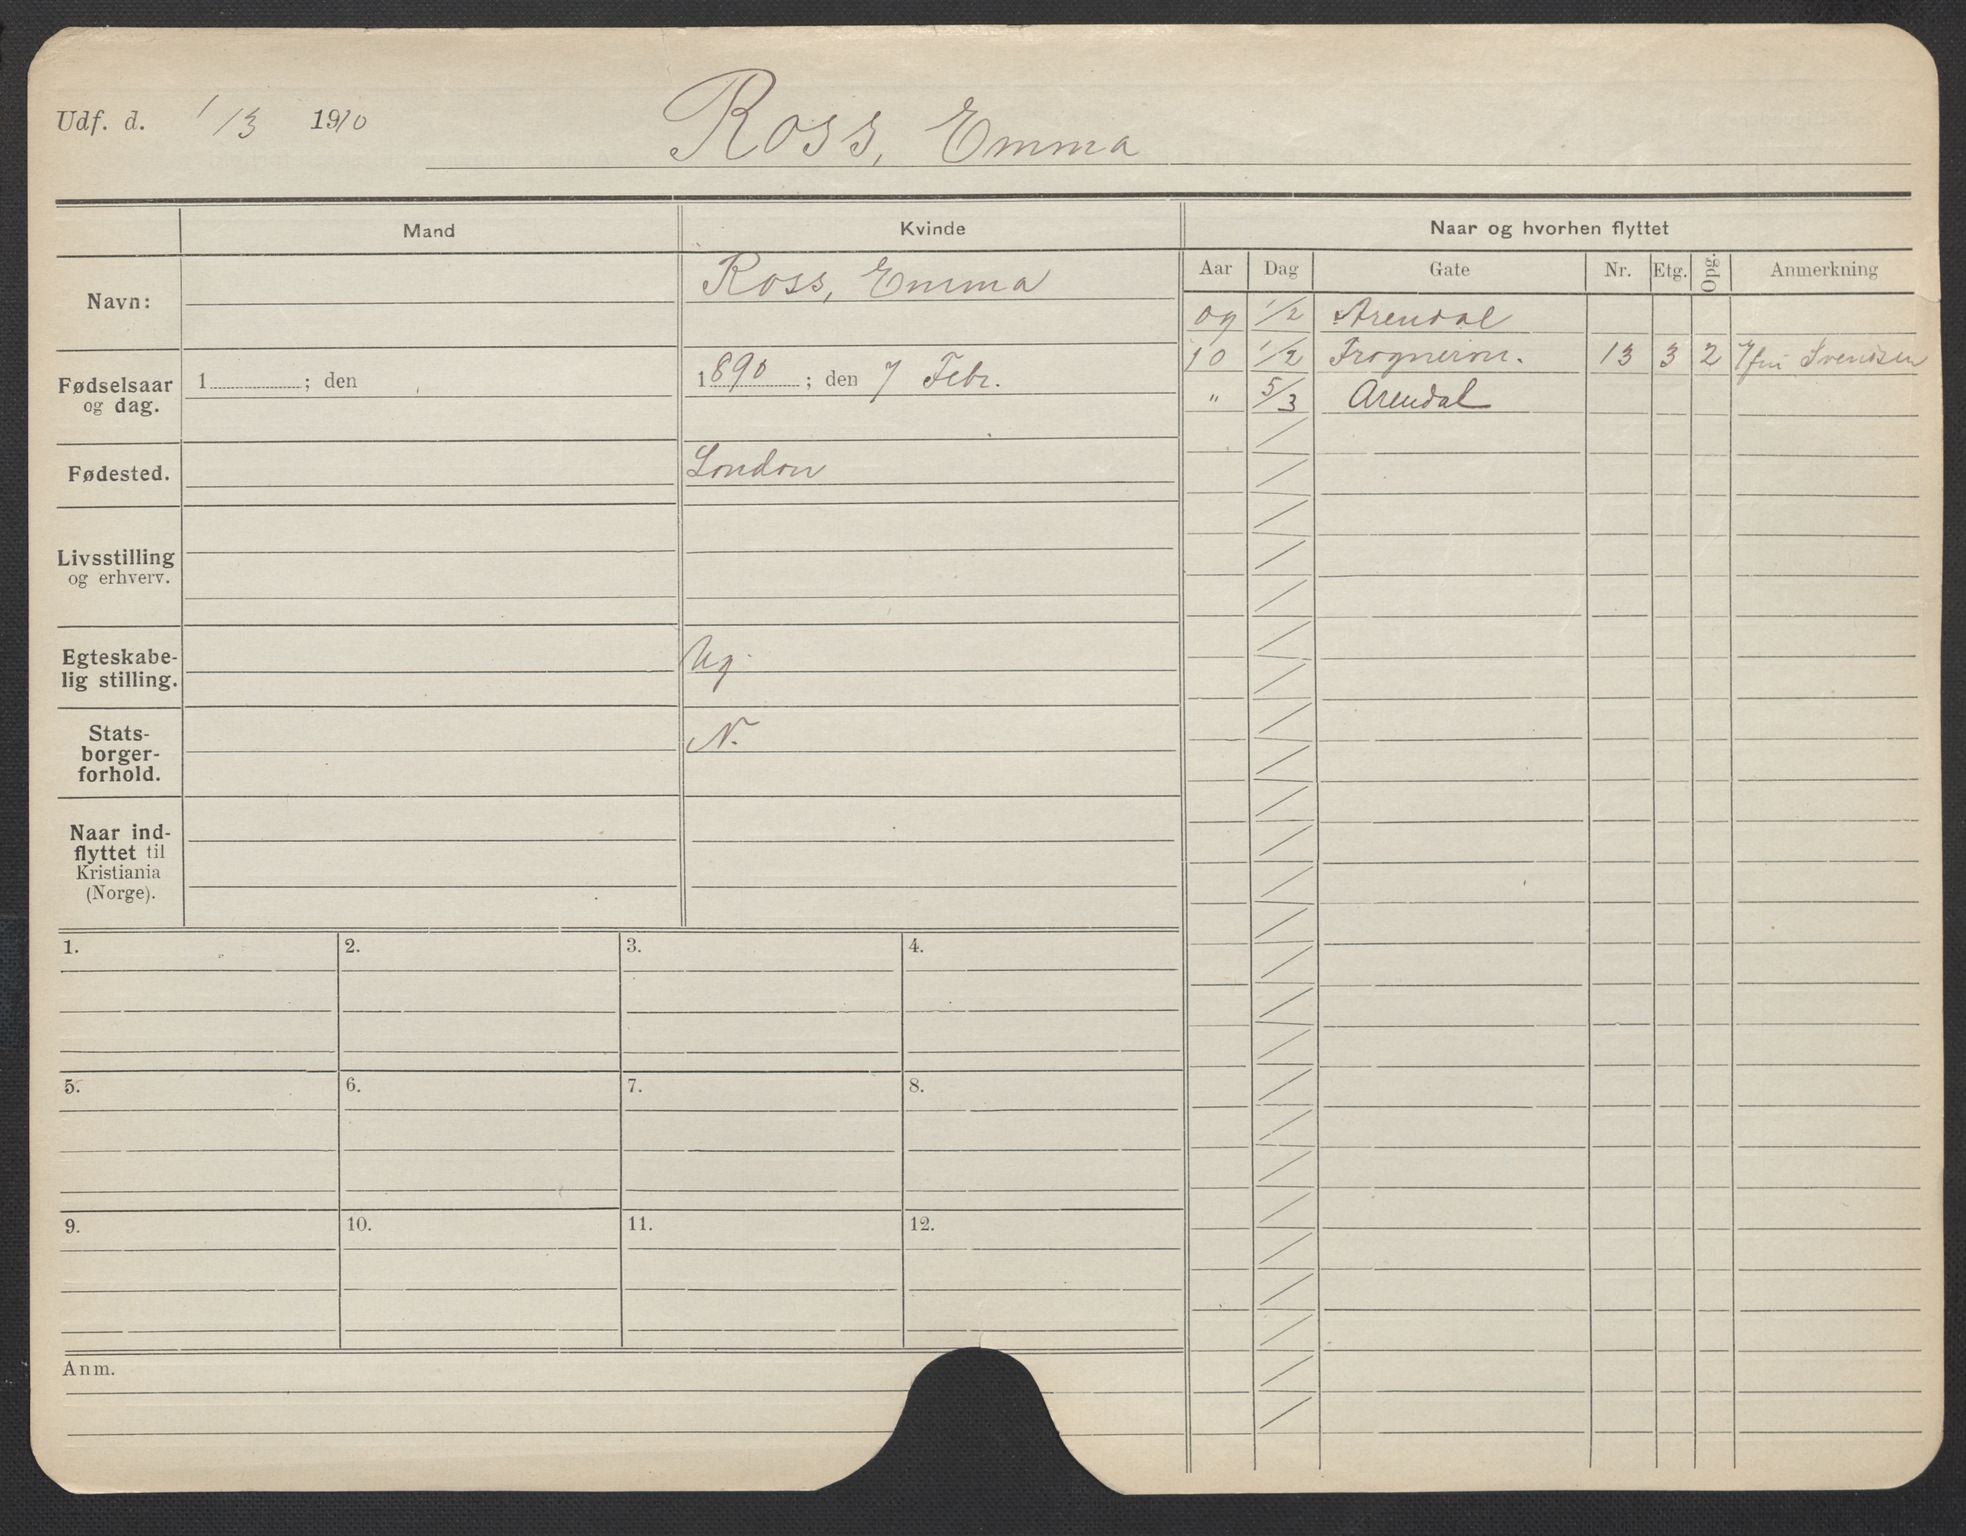 Udf. d. 1/3 1910 Ross, Emma
Mand Kvinde Naar og hvorhen flyttet
Aar Dag Gate Nr. Etg. Opg. Anmerkning
Navn: Ross, Emma
09 1/2 Arendal
10 1/2 Frognervn. 13 3 2 Svendsen
" 5/3 Arendal
Fødselsaar
og dag.
1 ; den
1890 ; den 7 Febr.
Fødested. London
Livsstilling
og erhverv.
Egteskabe-
lig stilling.
Ug.
Stats-
borger-
forhold.
N.
Naar ind-
flyttet til
Kristiania
(Norge).
1. 2. 3. 4.
5. 6. 7. 8.
9. 10. 11. 12.
Anm.